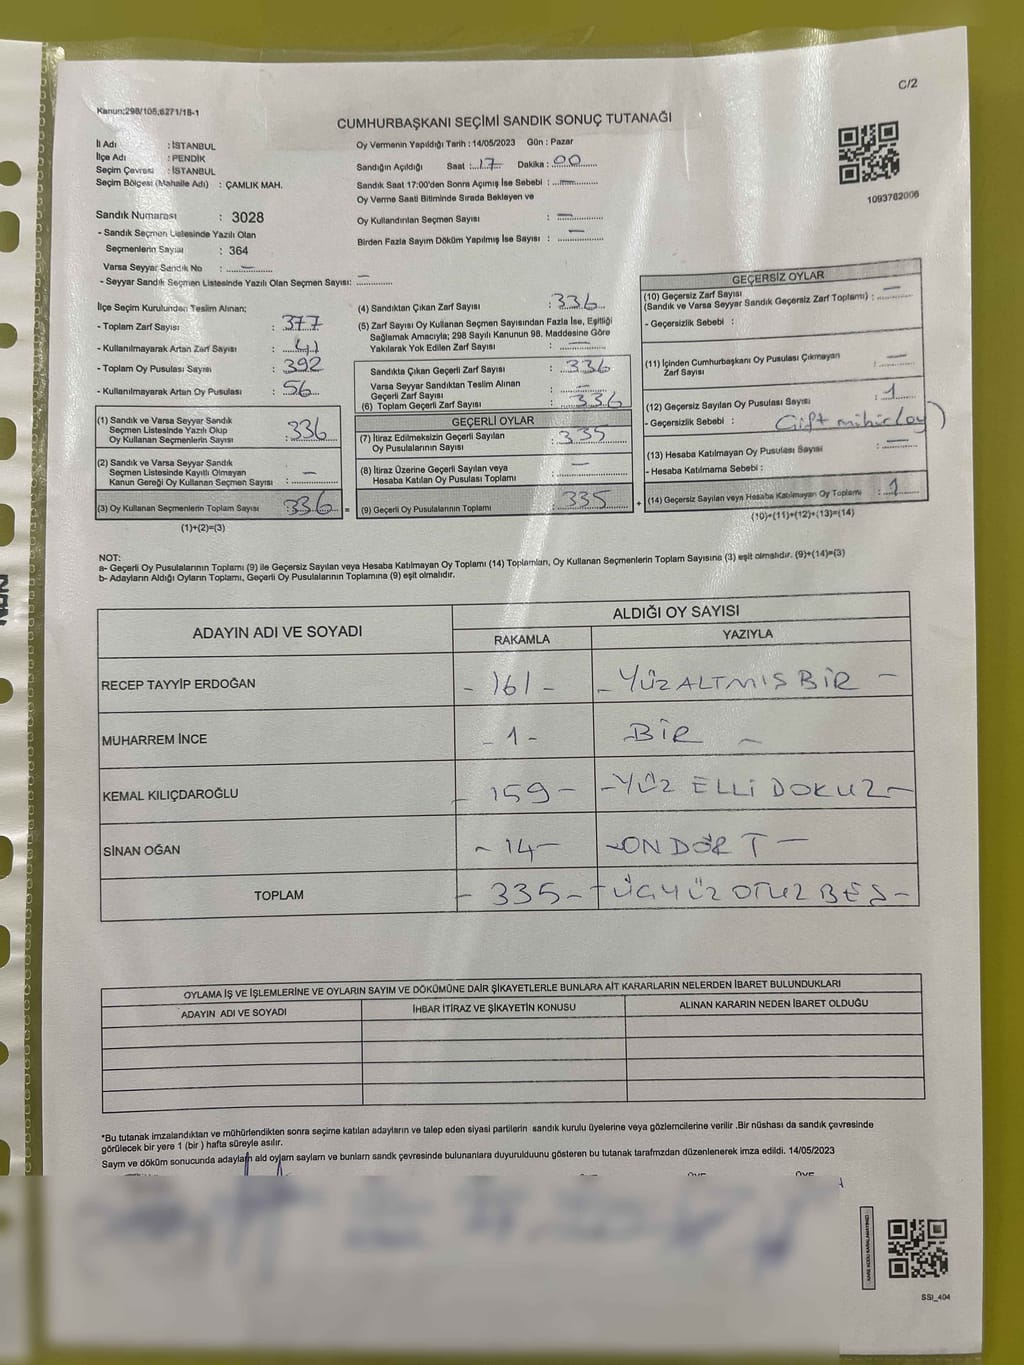 C/2
Kanun:298/105,6271/18-1
CUMHURBAŞKANI SEÇİMİ SANDIK SONUÇ TUTANAĞI
İl Adı : İSTANBUL
İlçe Adı : PENDİK
Seçim Çevresi : İSTANBUL
Seçim Bölgesi (Mahalle Adı) : ÇAMLIK MAH.
Oy Vermenin Yapıldığı Tarih : 14/05/2023 Gün : Pazar
Sandığın Açıldığı Saat : 17 Dakika : 00
Sandık Saat 17:00'den Sonra Açımış İse Sebebi : —
Oy Verme Saati Bitiminde Sırada Bekleyen ve
Oy Kullandırılan Seçmen Sayısı : —
Birden Fazla Sayım Döküm Yapılmış İse Sayısı : —
1093762006
Sandık Numarası : 3028
- Sandık Seçmen Listesinde Yazılı Olan
Seçmenlerin Sayısı : 364
Varsa Seyyar Sandık No : —
- Seyyar Sandık Seçmen Listesinde Yazılı Olan Seçmen Sayısı: —
İlçe Seçim Kurulundan Teslim Alınan:
- Toplam Zarf Sayısı : 377
- Kullanılmayarak Artan Zarf Sayısı : 41
- Toplam Oy Pusulası Sayısı : 392
- Kullanılmayarak Artan Oy Pusulası : 56
(1) Sandık ve Varsa Seyyar Sandık
Seçmen Listesinde Yazılı Olup
Oy Kullanan Seçmenlerin Sayısı : 336
(2) Sandık ve Varsa Seyyar Sandık
Seçmen Listesinde Kayıtlı Olmayan
Kanun Gereği Oy Kullanan Seçmen Sayısı : —
(3) Oy Kullanan Seçmenlerin Toplam Sayısı : 336 =
(1)+(2)=(3)
(4) Sandıktan Çıkan Zarf Sayısı : 336
(5) Zarf Sayısı Oy Kullanan Seçmen Sayısından Fazla İse, Eşitliği
Sağlamak Amacıyla; 298 Sayılı Kanunun 98. Maddesine Göre
Yakılarak Yok Edilen Zarf Sayısı : —
Sandıkta Çıkan Geçerli Zarf Sayısı : 336
Varsa Seyyar Sandıktan Teslim Alınan
Geçerli Zarf Sayısı : —
(6) Toplam Geçerli Zarf Sayısı : 336
GEÇERLİ OYLAR
(7) İtiraz Edilmeksizin Geçerli Sayılan
Oy Pusulasının Sayısı : 335
(8) İtiraz Üzerine Geçerli Sayılan veya
Hesaba Katılan Oy Pusulası Toplamı : —
(9) Geçerli Oy Pusulalarının Toplamı : 335 +
GEÇERSİZ OYLAR
(10) Geçersiz Zarf Sayısı
(Sandık ve Varsa Seyyar Sandık Geçersiz Zarf Toplamı) : —
- Geçersizlik Sebebi :
(11) İçinden Cumhurbaşkanı Oy Pusulası Çıkmayan
Zarf Sayısı : —
(12) Geçersiz Sayılan Oy Pusulası Sayısı : 1
- Geçersizlik Sebebi : Çift mühürlü oy
(13) Hesaba Katılmayan Oy Pusulası Sayısı : —
- Hesaba Katılmama Sebebi :
(14) Geçersiz Sayılan veya Hesaba Katılmayan Oy Toplamı : 1
(10)+(11)+(12)+(13)=(14)
NOT:
a- Geçerli Oy Pusulalarının Toplamı (9) ile Geçersiz Sayılan veya Hesaba Katılmayan Oy Toplamı (14) Toplamları, Oy Kullanan Seçmenlerin Toplam Sayısına (3) eşit olmalıdır. (9)+(14)=(3)
b- Adayların Aldığı Oyların Toplamı, Geçerli Oy Pusulalarının Toplamına (9) eşit olmalıdır.
ADAYIN ADI VE SOYADI ALDIĞI OY SAYISI
RAKAMLA YAZIYLA
RECEP TAYYİP ERDOĞAN - 161 - - YÜZALTMIŞ BİR -
MUHARREM İNCE - 1 - - BİR -
KEMAL KILIÇDAROĞLU - 159 - - YÜZ ELLİ DOKUZ -
SİNAN OĞAN - 14 - - ON DÖRT -
TOPLAM - 335 - - ÜÇYÜZ OTUZ BEŞ -
OYLAMA İŞ VE İŞLEMLERİNE VE OYLARIN SAYIM VE DÖKÜMÜNE DAİR ŞİKAYETLERLE BUNLARA AİT KARARLARIN NELERDEN İBARET BULUNDUKLARI
ADAYIN ADI VE SOYADI İHBAR İTİRAZ VE ŞİKAYETİN KONUSU ALINAN KARARIN NEDEN İBARET OLDUĞU
*Bu tutanak imzalandıktan ve mühürlendikten sonra seçime katılan adayların ve talep eden siyasi partilerin sandık kurulu üyelerine veya gözlemcilerine verilir .Bir nüshası da sandık çevresinde
görülecek bir yere 1 (bir ) hafta süreyle asılır.
Sayım ve döküm sonucunda adayların aldı oyların sayların ve bunların sandık çevresinde bulunanlara duyurulduunu gösteren bu tutanak tarafmzdan düzenlenerek imza edildi. 14/05/2023
SSI_404